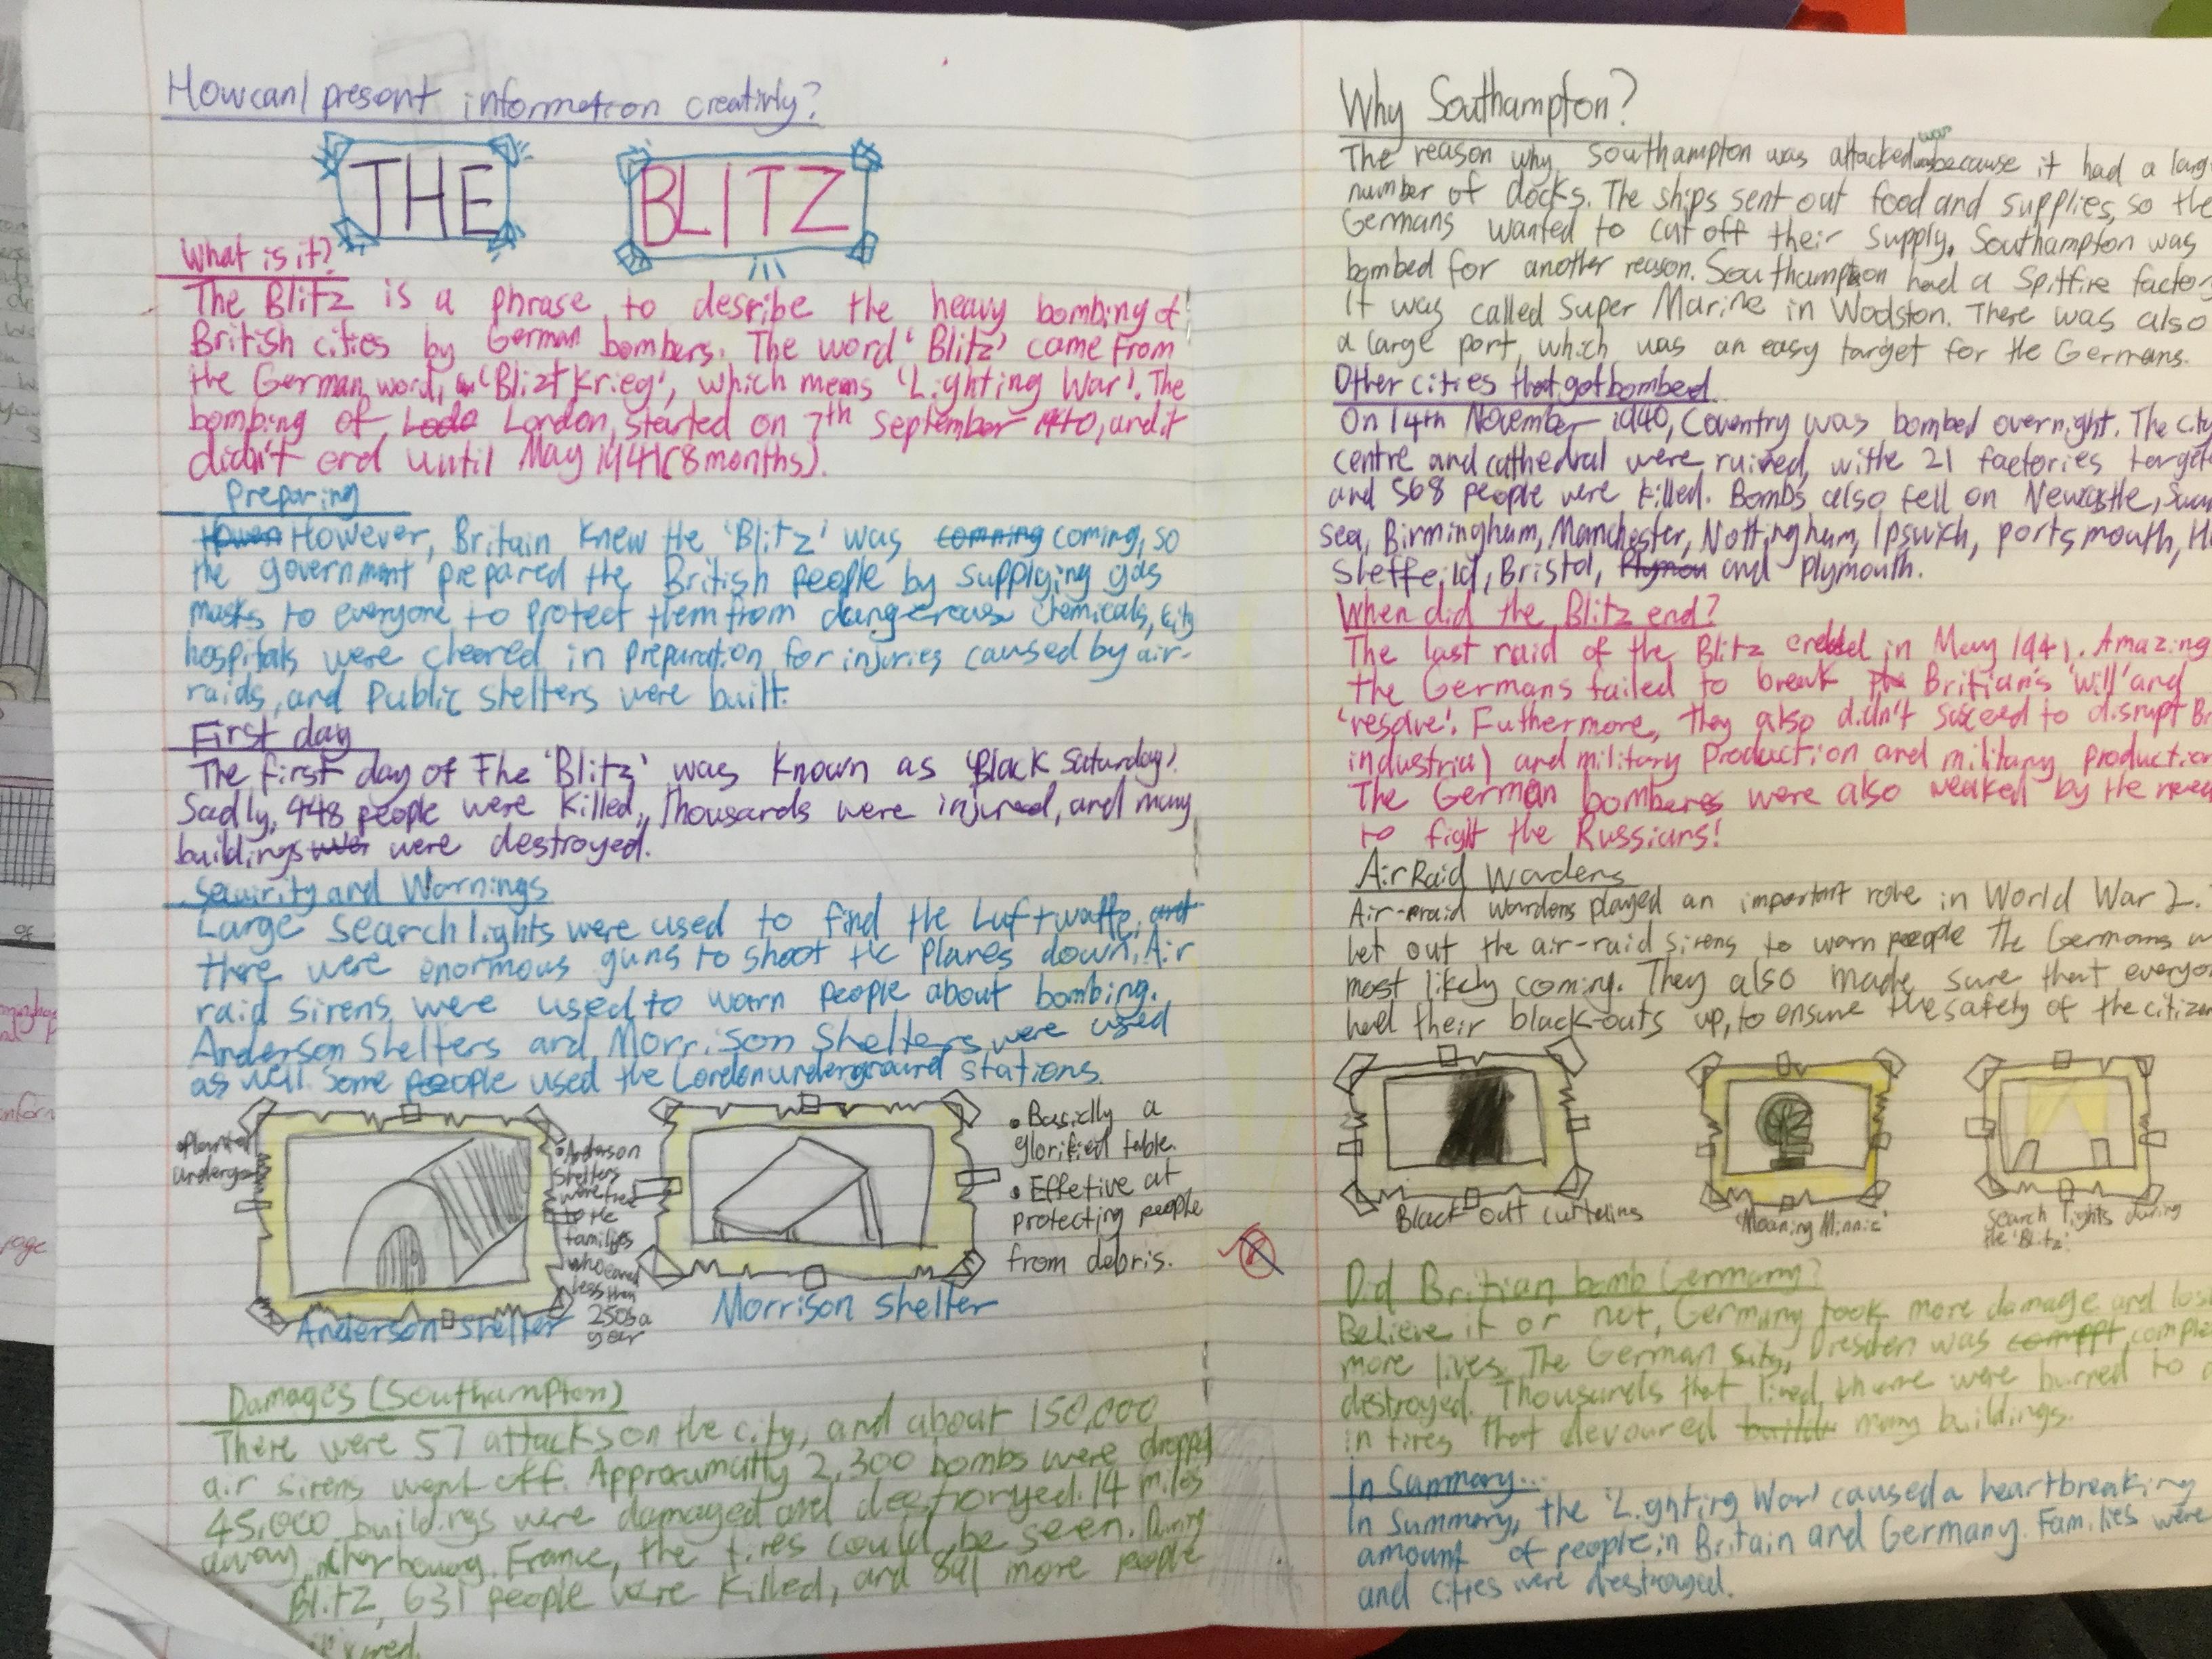 How can I present information creativly?
THE BLITZ
What is it?
The Blitz is a phrase to desribe the heavy bombing of
British cities by German bombers. The word 'Blitz' came from
the German word, 'Bliztkrieg', which means 'Lighting War'. The
bombing of London, started on 7th September 1940, and it
didn't end until May 1941 (8 months).
Preparing
However, Britain knew the 'Blitz' was coming, so
the government prepared the British people by supplying gas
masks to everyone to protect them from dangerous chemicals, city
hospitals were cleared in preparation for injuries caused by air-
raids, and public shelters were built.
First day
The first day of The 'Blitz' was known as 'Black Saturday'.
Sadly, 448 people were killed, Thousands were injured, and many
buildings were destroyed.
Security and Warnings
Large searchlights were used to find the Luftwaffe, and
there were enormous guns to shoot the planes down. Air
raid sirens were used to warn people about bombing.
Anderson Shelters and Morrison Shelters were used
as well. Some people used the London underground stations.
• Planted
underground
• Anderson
Shelters
were free
to the
families
who earned
less than
250 a
year
Anderson Shelter
• Basiclly a
glorified table.
• Effetive at
protecting people
from debris.
Morrison Shelter
Damages (Southampton)
There were 57 attacks on the city, and about 150,000
air sirens went off. Approxumatly 2,300 bombs were dropped
45,000 buildings were damaged and destroryed. 14 miles
away, in Cherbourg, France, the fires could be seen. During
Blitz, 631 people were killed, and 891 more people
Why Southampton?
The reason why Southampton was attacked was because it had a larg
number of docks. The ships sent out food and supplies, so the
Germans wanted to cut off their supply. Southampton was
bombed for another reason. Southampton had a Spitfire factory
It was called Super Marine in Wodston. There was also
a large port, which was an easy target for the Germans.
Other cities that got bombed
On 14th November 1940, Coventry was bombed overnight. The city
centre and cathedral were ruined, withe 21 factories targete
and 568 people were killed. Bombs also fell on Newcastle, Swan
sea, Birmingham, Manchester, Nottingham, Ipswich, portsmouth, H
Sheffeild, Bristol, and Plymouth.
When did the Blitz end?
The last raid of the Blitz ended in May 1941. Amazing
the Germans failed to break Britian's 'will' and
'resolve'. Futhermore, they also didn't suceed to disrupt Br
industrial and military production and military production
The German bombers were also weaked by the need
to fight the Russians!
Air Raid Wardens
Air-raid wardens played an important role in World War 2.
let out the air-raid sirens to warn people The Germans w
most likely coming. They also made sure that everyo
had their black-outs up, to ensure the safety of the citizen
Black out curtains
'Moaning Minnie'
Search lights during
the 'Blitz'
Did Britian bomb Germany?
Believe it or not, Germany took more damage and lost
more lives. The German sity, Dresden was comple
destroyed. Thousands that lived there were burned to
in fires that devoured many buildings.
In Summary...
In Summary, the 'Lighting War' caused a heartbreaking
amount of people in Britain and Germany. Families were
and cities were destroyed.